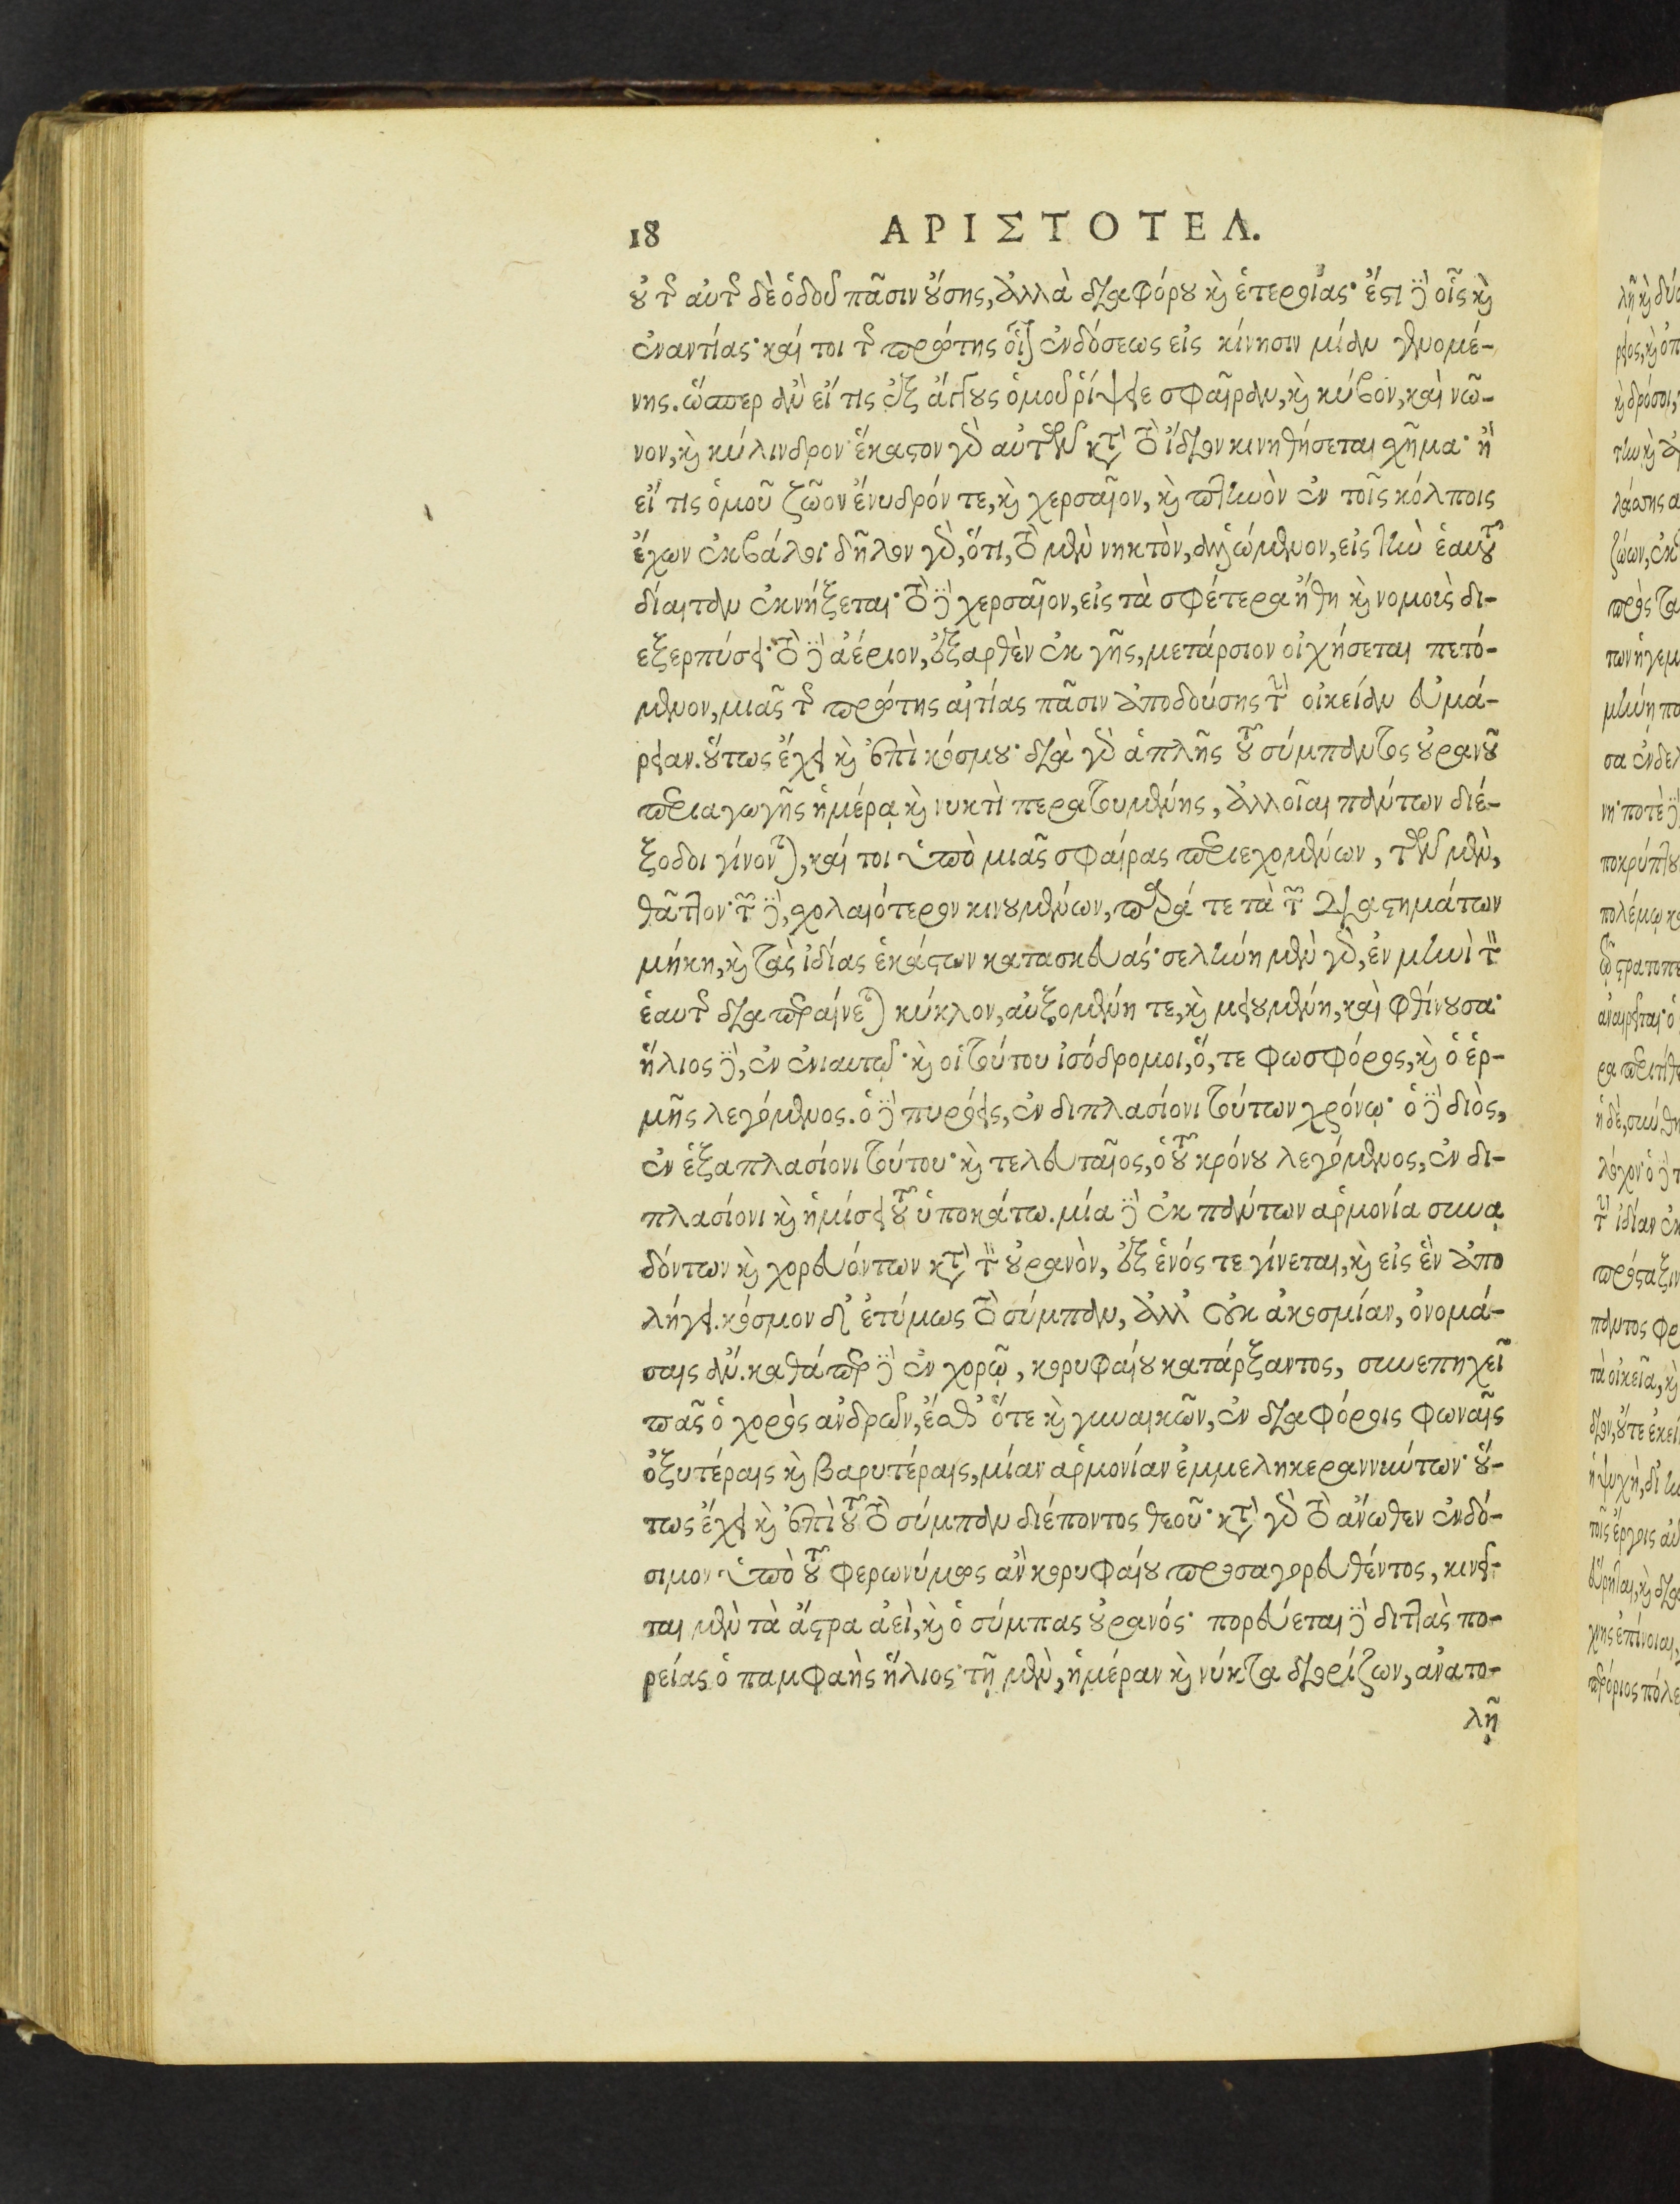 18 ΑΡΙΣΤΟΤΕΛ.
οὐ τῆς αὐτῆς δὲ ὁδοῦ πᾶσιν οὔσης, ἀλλὰ διαφόρου καὶ ἑτεροίας· ἔστι δὲ οἷς καὶ
ἐναντίας· καί τοι τῆς πρώτης οἷον ἐνδόσεως εἰς κίνησιν μίαν γενομέ-
νης. ὥσπερ ἂν εἴ τις ἐξ ἄγγους ὁμοῦ ῥίψειε σφαῖραν, καὶ κύβον, καὶ κῶ-
νον, καὶ κύλινδρον· ἕκαστον γὰρ αὐτῶν κατὰ τὸ ἴδιον κινηθήσεται σχῆμα· ἢ
εἴ τις ὁμοῦ ζῶον ἔνυδρόν τε, καὶ χερσαῖον, καὶ πτηνὸν ἐν τοῖς κόλποις
ἔχων ἐκβάλοι· δῆλον γὰρ, ὅτι, τὸ μὲν νηκτὸν, ἁλλόμενον, εἰς τὴν ἑαυτοῦ
δίαιταν ἐκνήξεται· τὸ δὲ χερσαῖον, εἰς τὰ σφέτερα ἤθη καὶ νομοὺς δι-
εξερπύσει· τὸ δὲ ἀέριον, ἐξαρθὲν ἐκ γῆς, μετάρσιον οἰχήσεται πετό-
μενον, μιᾶς τῆς πρώτης αἰτίας πᾶσιν ἀποδούσης τὴν οἰκείαν εὐμά-
ρειαν. οὕτως ἔχει καὶ ἐπὶ κόσμου· διὰ γὰρ ἁπλῆς τοῦ σύμπαντος οὐρανοῦ
περιαγωγῆς ἡμέρᾳ καὶ νυκτὶ περατουμένης, ἀλλοῖαι πάντων διέ-
ξοδοι γίνονται, καί τοι ὑπὸ μιᾶς σφαίρας περιεχομένων, τῶν μὲν,
θᾶττον· τῶν δὲ, σχολαιότερον κινουμένων, παρά τε τὰ τῶν διαστημάτων
μήκη, καὶ τὰς ἰδίας ἑκάστων κατασκευάς· σελήνη μὲν γὰρ, ἐν μηνὶ τὸν
ἑαυτῆς διαπεραίνεται κύκλον, αὐξομένη τε, καὶ μειουμένη, καὶ φθίνουσα·
ἥλιος δὲ, ἐν ἐνιαυτῷ· καὶ οἱ τούτου ἰσόδρομοι, ὅ, τε φωσφόρος, καὶ ὁ ἑρ-
μῆς λεγόμενος. ὁ δὲ πυρόεις, ἐν διπλασίονι τούτων χρόνῳ· ὁ δὲ διὸς,
ἐν ἑξαπλασίονι τούτου· καὶ τελευταῖος, ὁ τοῦ κρόνου λεγόμενος, ἐν δι-
πλασίονι καὶ ἡμίσει τοῦ ὑποκάτω. μία δὲ ἐκ πάντων ἁρμονία συνᾳ
δόντων καὶ χορευόντων κατὰ τὸν οὐρανὸν, ἐξ ἑνός τε γίνεται, καὶ εἰς ἓν ἀπο
λήγει. κόσμον δ' ἐτύμως τὸ σύμπαν, ἀλλ' οὐκ ἀκοσμίαν, ὀνομά-
σαις ἄν. καθάπερ δὲ ἐν χορῷ, κορυφαίου κατάρξαντος, συνεπηχεῖ
πᾶς ὁ χορὸς ἀνδρῶν, ἔσθ' ὅτε καὶ γυναικῶν, ἐν διαφόροις φωναῖς
ὀξυτέραις καὶ βαρυτέραις, μίαν ἁρμονίαν ἐμμελῆ κεραννύντων· οὕ-
τως ἔχει καὶ ἐπὶ τοῦ τὸ σύμπαν διέποντος θεοῦ· κατὰ γὰρ τὸ ἄνωθεν ἐνδό-
σιμον ὑπὸ τοῦ φερωνύμως ἂν κορυφαίου προσαγορευθέντος, κινεῖ-
ται μὲν τὰ ἄστρα ἀεὶ, καὶ ὁ σύμπας οὐρανός· πορεύεται δὲ διττὰς πο-
ρείας ὁ παμφαὴς ἥλιος· τῇ μὲν, ἡμέραν καὶ νύκτα διορίζων, ἀνατο-
λῇ